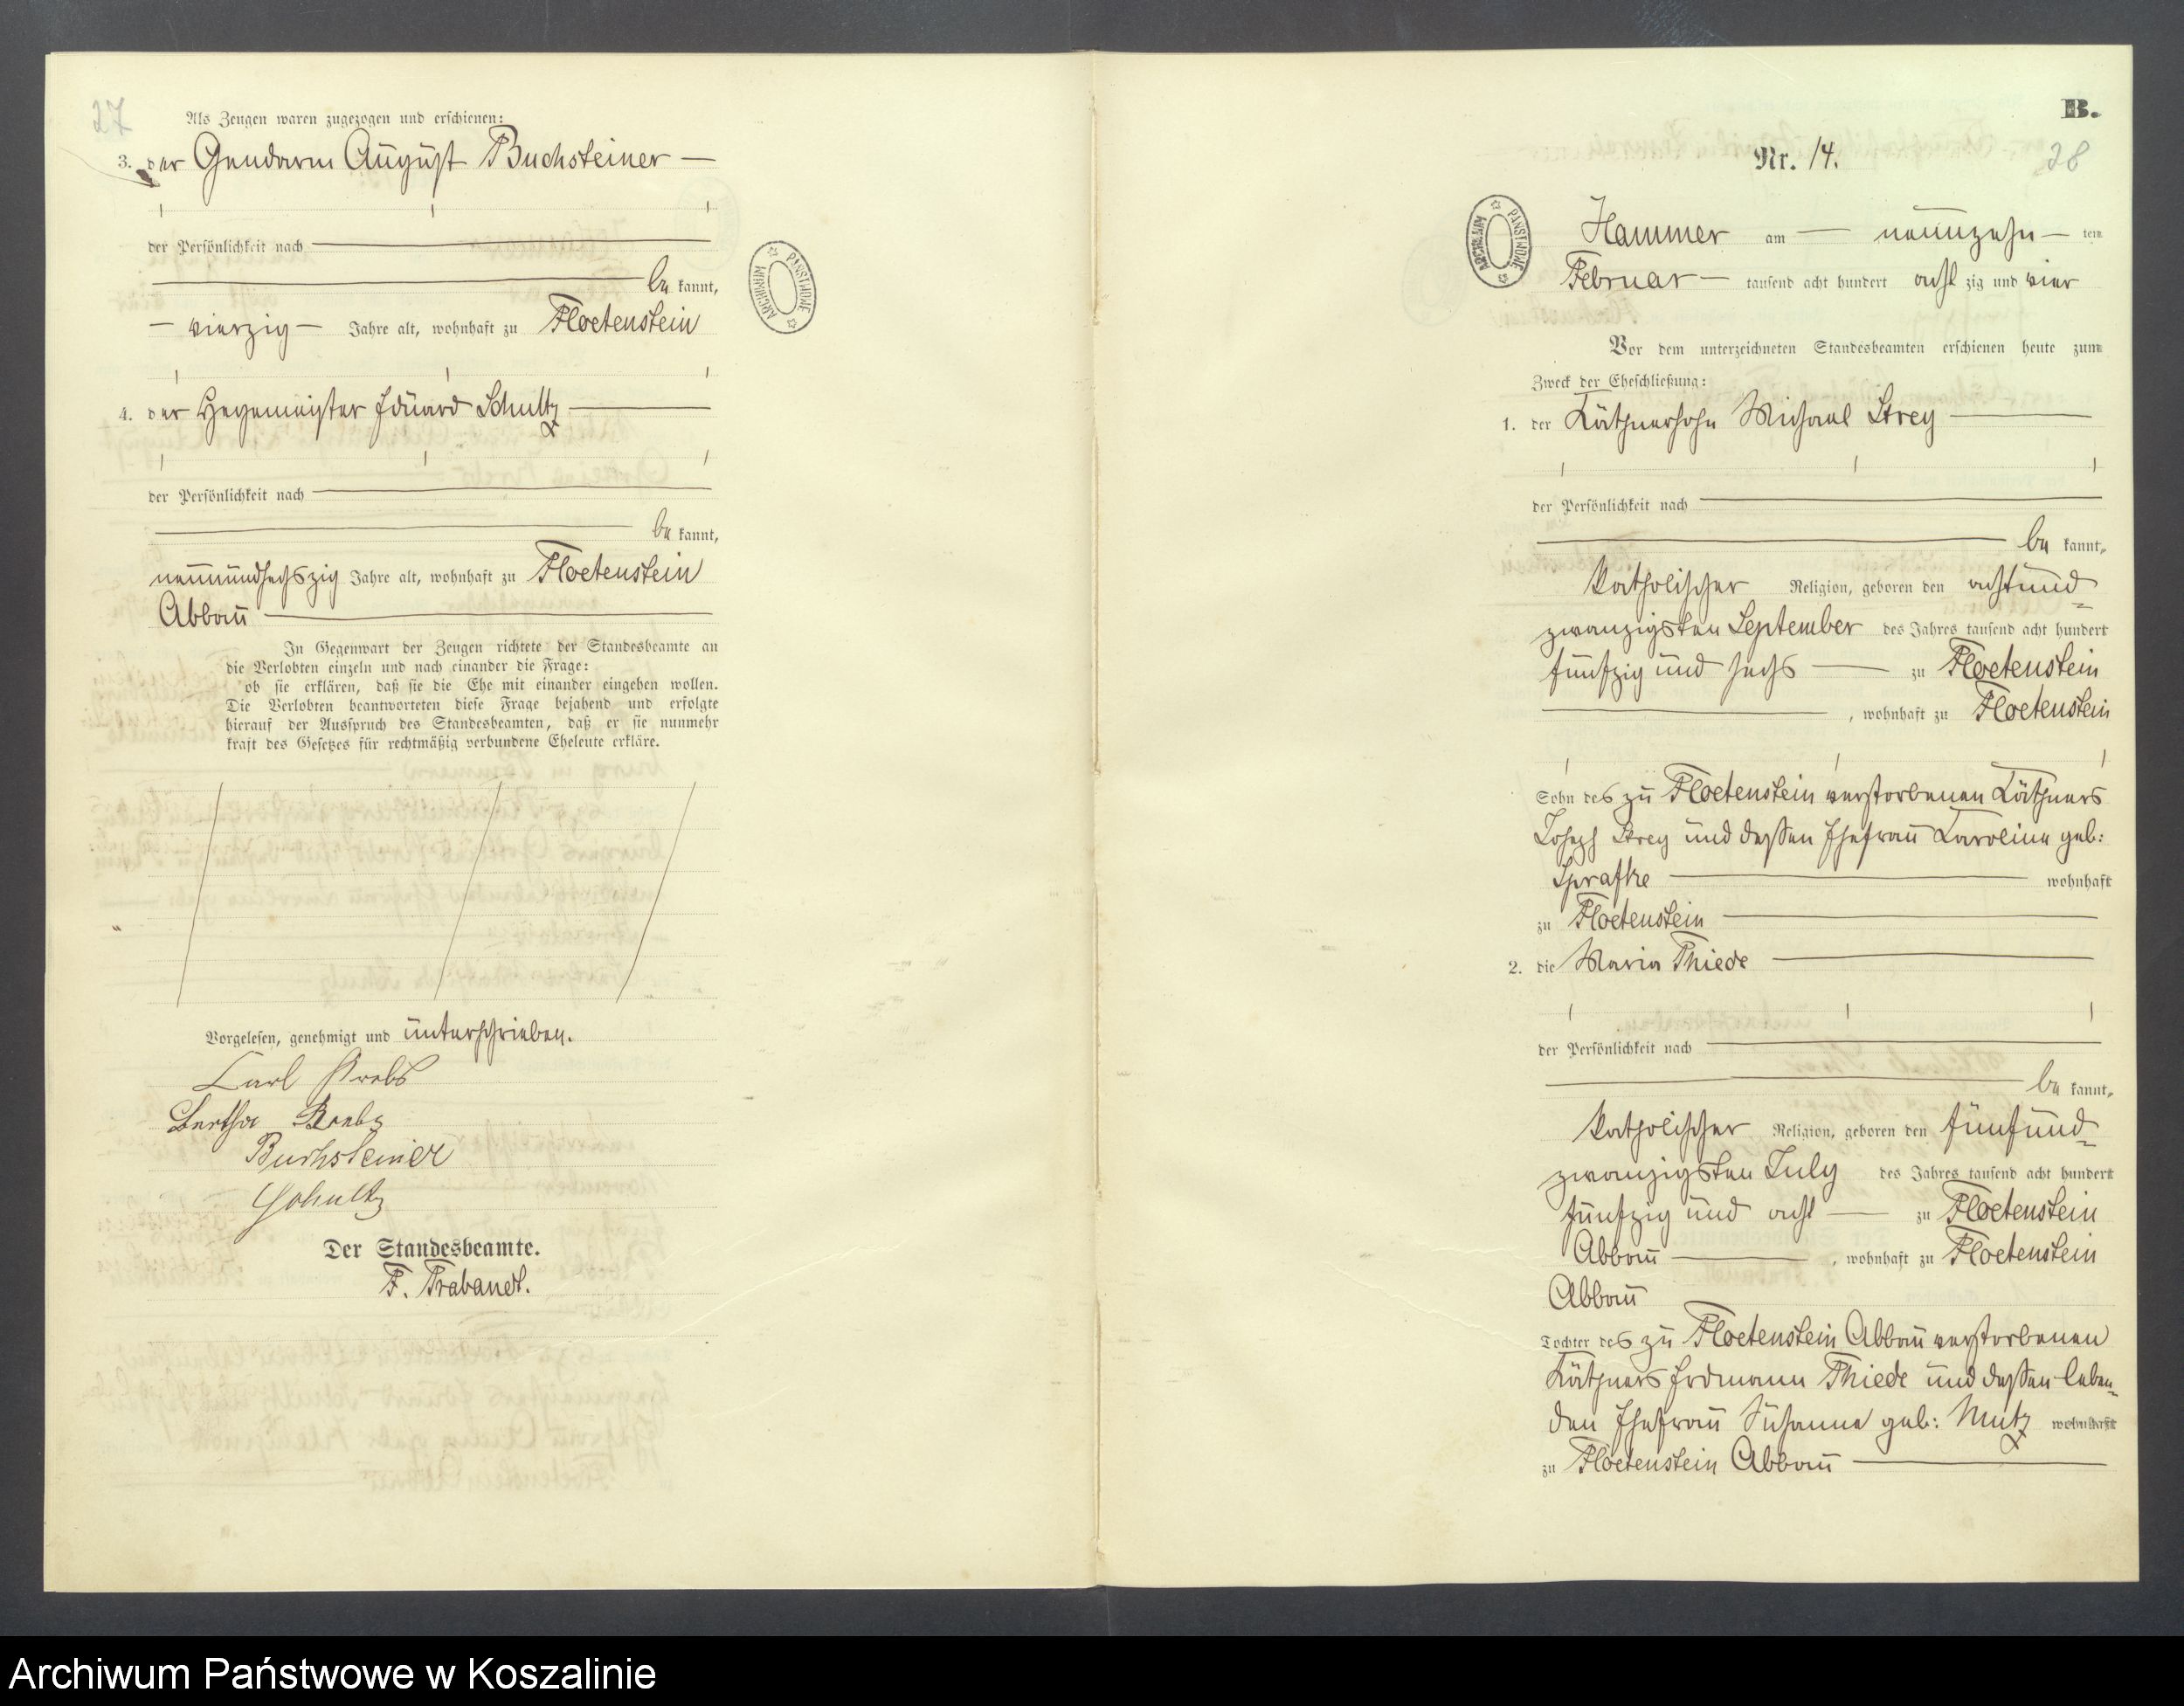 27
Als Zeugen waren zugezogen und erschienen:
3. der Gendarm August Buchsteiner —
der Persönlichkeit nach
be kannt,
— vierzig — Jahre alt, wohnhaft zu Floetenstein
4. der Hegemeister Eduard Schultz
der Persönlichkeit nach
be kannt,
neunundsechszig Jahre alt, wohnhaft zu Floetenstein
Abbau
In Gegenwart der Zeugen richtete der Standesbeamte an
die Verlobten einzeln und nach einander die Frage:
ob sie erklären, daß sie die Ehe mit einander eingehen wollen.
Die Verlobten beantworteten diese Frage bejahend und erfolgte
hierauf der Ausspruch des Standesbeamten, daß er sie nunmehr
kraft des Gesetzes für rechtmäßig verbundene Eheleute erkläre.
Vorgelesen, genehmigt und unterschrieben.
Carl Krebs
Bertha Krebs
Buchsteiner
Schultz
Der Standesbeamte.
F. Trabandt.
ARCHIWUM PAŃSTWOWE
B.
Nr. 14.
28
ARCHIWUM PAŃSTWOWE
Hammer am — neunzehn — ten
Februar — tausend acht hundert acht zig und vier
Vor dem unterzeichneten Standesbeamten erschienen heute zum
Zweck der Eheschließung:
1. der Käthnersohn Michael Strey
der Persönlichkeit nach
be kannt,
katholischer Religion, geboren den achtund=
zwanzigsten September des Jahres tausend acht hundert
fünfzig und sechs — zu Floetenstein
, wohnhaft zu Floetenstein
Sohn des zu Floetenstein verstorbenen Käthners
Joseph Strey und dessen Ehefrau Karoline geb:
Sprafke wohnhaft
zu Floetenstein
2. die Maria Thiede
der Persönlichkeit nach
be kannt,
katholischer Religion, geboren den fünfund=
zwanzigsten July des Jahres tausend acht hundert
fünfzig und acht — zu Floetenstein
Abbau , wohnhaft zu Floetenstein
Abbau
Tochter des zu Floetenstein Abbau verstorbenen
Käthners Erdmann Thiede und dessen leben=
den Ehefrau Susanne geb: Mutz wohnhaft
zu Floetenstein Abbau
Archiwum Państwowe w Koszalinie